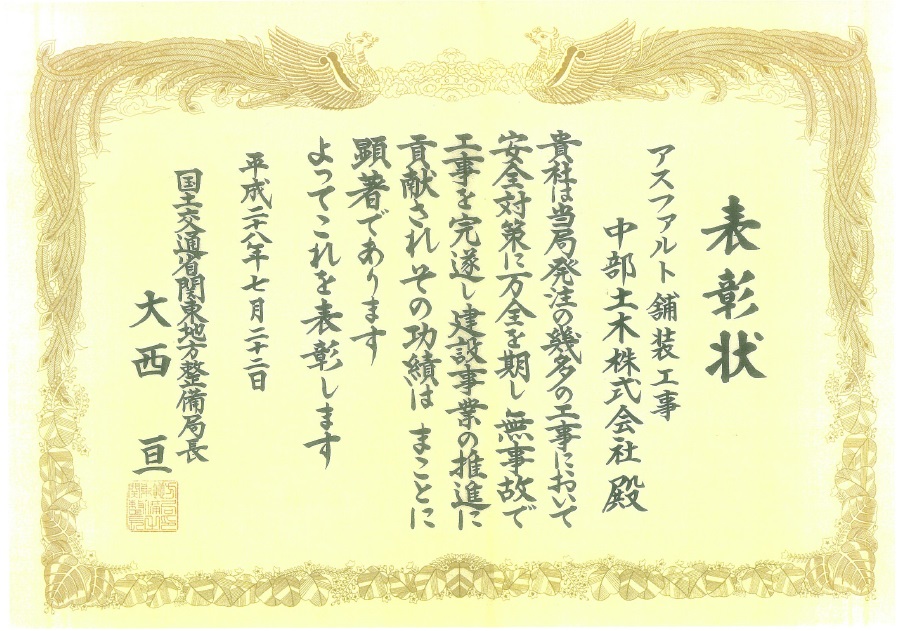 表彰状
アスファルト舗装工事
中部土木株式会社殿
貴社は当局発注の幾多の工事において
安全対策に万全を期し無事故で
工事を完遂し建設事業の推進に
貢献されその功績はまことに
顕著であります
よってこれを表彰します
平成二十八年七月二十二日
国土交通省関東地方整備局長
大西亘